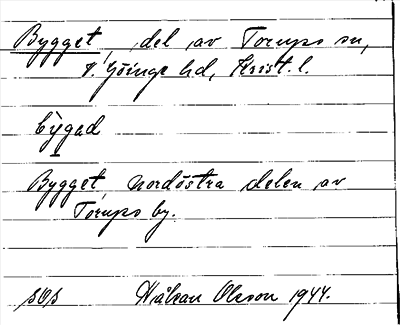 Bygget, del av Torups sn,
V. Göinge hd, Krist. l.
bỳgad
Bygget, nordöstra delen av
Torups by.
sOs Håkan Olsson 1944.